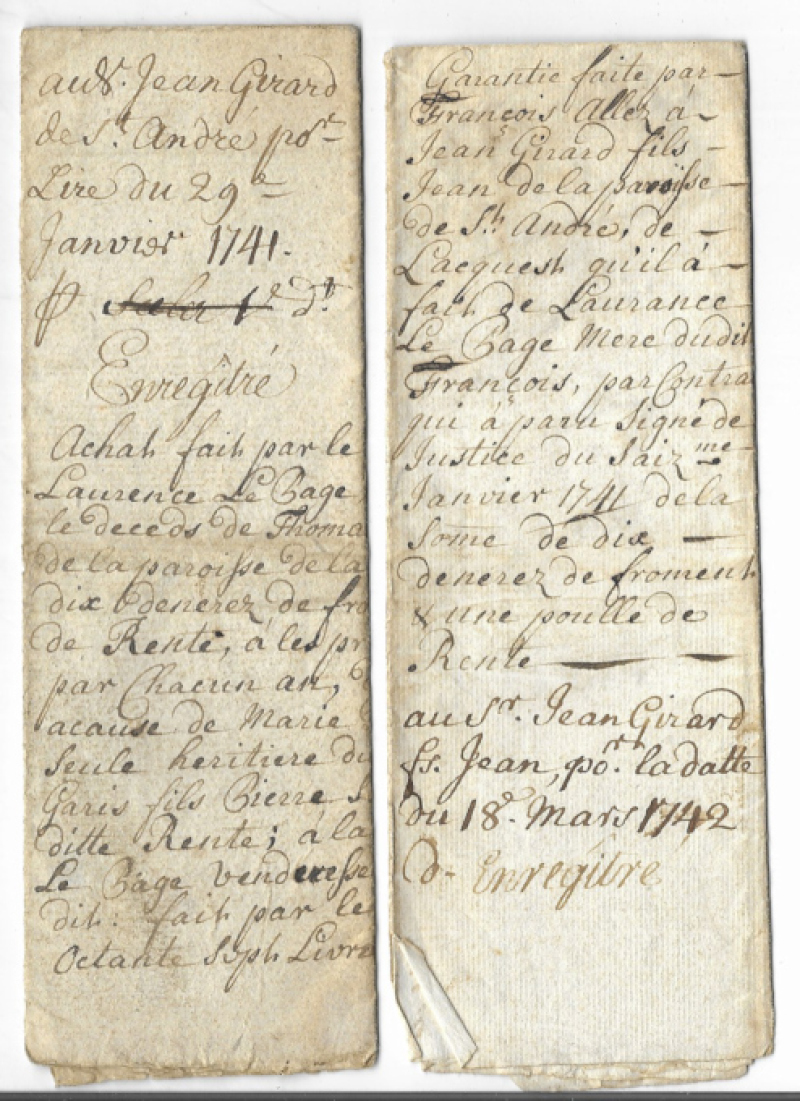 au Sr. Jean Girard
de St. André por
Lire du 29e
Janvier 1741.
Enregîtré
Achat fait par le
Laurence Le Page
le deceds de Thoma
de la paroisse de la
dix denerez de fro
de Rente, à les pr
par Chacun an,
acause de Marie
Seule heritiere du
Garis fils Pierre S
ditte Rente; à la
Le Page venderesse
dit: fait par le
Octante Sept Livre
Garantie faite par
François Allez à
Jean Girard fils
Jean de la paroisse
de St. André, de
Lacquest qu'il à
fait de Laurance
Le Page Mere dudit
François, par Contra
qui à paru Signé de
Justice du Saiz.me
Janvier 1741 de la
Some de dix
denerez de froment
& une poulle de
Rente
au Sr. Jean Girard
fs. Jean, por. la datte
du 18e. Mars 1742
Enregîtré